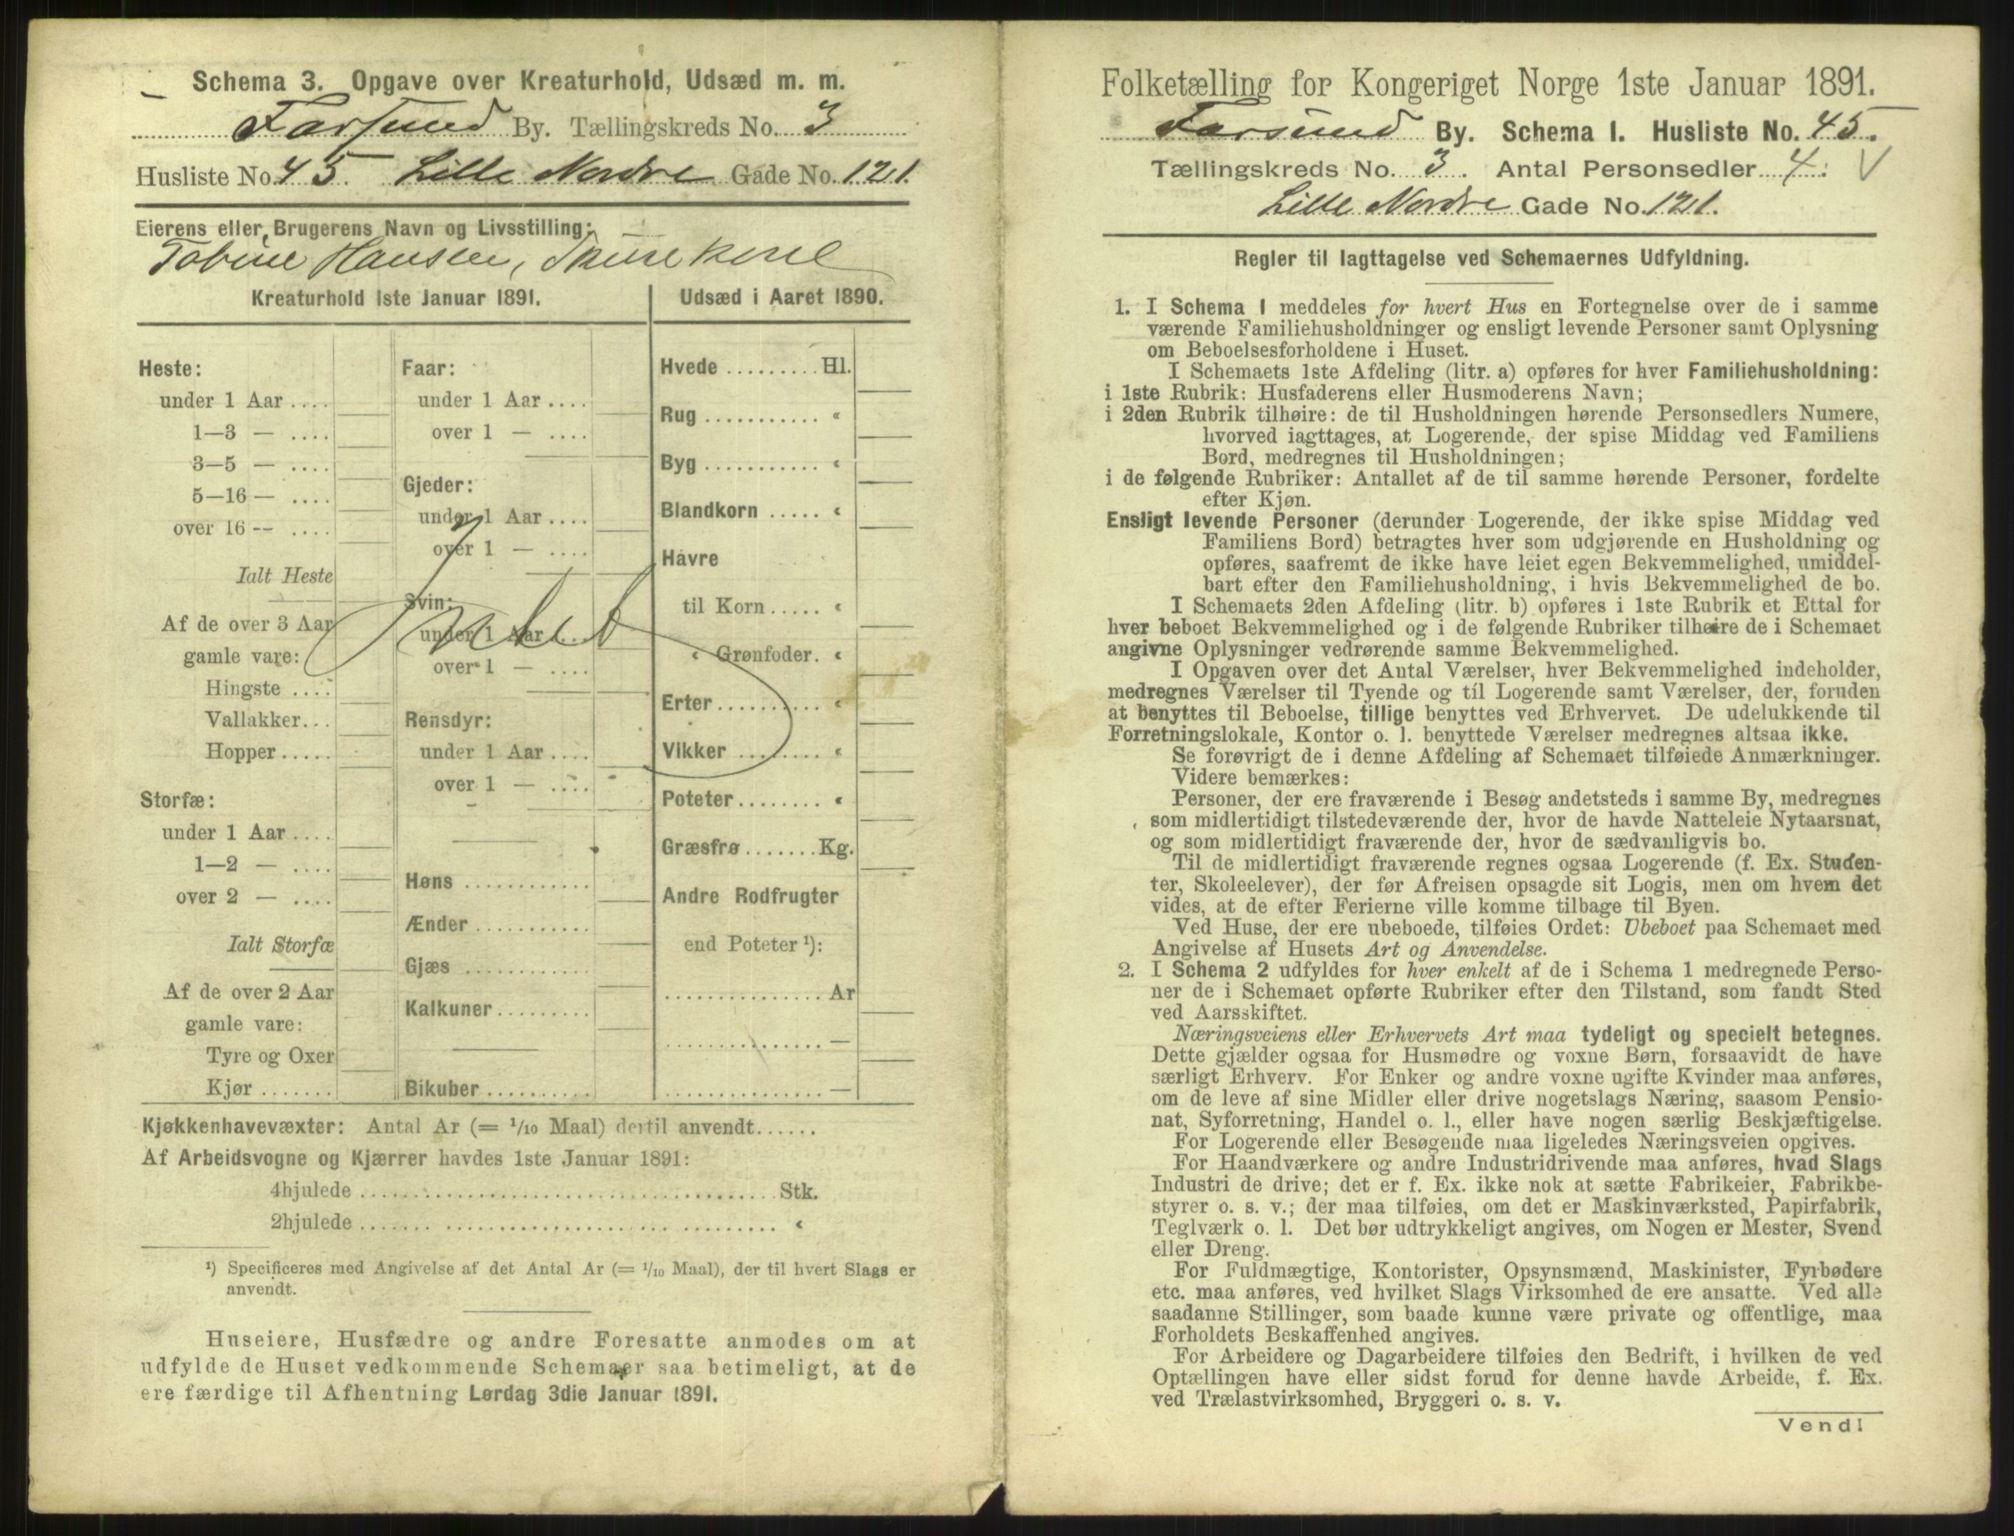 Schema 3. Opgave over Kreaturhold, Udsæd m. m.
Farsund By. Tællingskreds No. 3
Husliste No. 45. Lille Nordre Gade No. 121.
Eierens eller Brugerens Navn og Livsstilling:
Tobine Hansen,
Kreaturhold 1ste Januar 1891.
Heste:
under 1 Aar ....
1—3 — ....
3—5 — ....
5—16 — ....
over 16 -- ....
Ialt Heste
Af de over 3 Aar
gamle vare:
Hingste ....
Vallakker...
Hopper.....
Storfæ:
under 1 Aar ....
1—2 — ....
over 2 — ....
Ialt Storfæ
Af de over 2 Aar
gamle vare:
Tyre og Oxer
Kjør .......
Faar:
under 1 Aar ....
over 1 — ....
Gjeder:
under 1 Aar ....
over 1 — ....
Svin:
under 1 Aar ....
over 1 — ....
Intet
Rensdyr:
under 1 Aar ....
over 1 — ....
Høns ............
Ænder ...........
Gjæs ............
Kalkuner .........
Bikuber ..........
Udsæd i Aaret 1890.
Hvede ......... Hl.
Rug ........... «
Byg ........... «
Blandkorn ..... «
Havre
til Korn ..... «
« Grønfoder. «
Erter .......... «
Vikker ........ «
Poteter ........ «
Græsfrø ....... Kg.
Andre Rodfrugter
end Poteter ¹):
............... Ar
............... —
............... —
Kjøkkenhavevæxter: Antal Ar (= 1/10 Maal) dertil anvendt......
Af Arbeidsvogne og Kjærrer havdes 1ste Januar 1891:
4hjulede ........................................ Stk.
2hjulede ........................................ «
¹) Specificeres med Angivelse af det Antal Ar (= 1/10 Maal), der til hvert Slags er
anvendt.
Huseiere, Husfædre og andre Foresatte anmodes om at
udfylde de Huset vedkommende Schemaer saa betimeligt, at de
ere færdige til Afhentning Lørdag 3die Januar 1891.
Folketælling for Kongeriget Norge 1ste Januar 1891.
Farsund By. Schema 1. Husliste No. 45.
Tællingskreds No. 3. Antal Personsedler 4. √
Lille Nordre Gade No. 121.
Regler til Iagttagelse ved Schemaernes Udfyldning.
1. I Schema 1 meddeles for hvert Hus en Fortegnelse over de i samme
værende Familiehusholdninger og ensligt levende Personer samt Oplysning
om Beboelsesforholdene i Huset.
I Schemaets 1ste Afdeling (litr. a) opføres for hver Familiehusholdning:
i 1ste Rubrik: Husfaderens eller Husmoderens Navn;
i 2den Rubrik tilhøire: de til Husholdningen hørende Personsedlers Numere,
hvorved iagttages, at Logerende, der spise Middag ved Familiens
Bord, medregnes til Husholdningen;
i de følgende Rubriker: Antallet af de til samme hørende Personer, fordelte
efter Kjøn.
Ensligt levende Personer (derunder Logerende, der ikke spise Middag ved
Familiens Bord) betragtes hver som udgjørende en Husholdning og
opføres, saafremt de ikke have leiet egen Bekvemmelighed, umiddel-
bart efter den Familiehusholdning, i hvis Bekvemmelighed de bo.
I Schemaets 2den Afdeling (litr. b) opføres i 1ste Rubrik et Ettal for
hver beboet Bekvemmelighed og i de følgende Rubriker tilhøire de i Schemaet
angivne Oplysninger vedrørende samme Bekvemmelighed.
I Opgaven over det Antal Værelser, hver Bekvemmelighed indeholder,
medregnes Værelser til Tyende og til Logerende samt Værelser, der, foruden
at benyttes til Beboelse, tillige benyttes ved Erhvervet. De udelukkende til
Forretningslokale, Kontor o. l. benyttede Værelser medregnes altsaa ikke.
Se forøvrigt de i denne Afdeling af Schemaet tilføiede Anmærkninger.
Videre bemærkes:
Personer, der ere fraværende i Besøg andetsteds i samme By, medregnes
som midlertidigt tilstedeværende der, hvor de havde Natteleie Nytaarsnat,
og som midlertidigt fraværende der, hvor de sædvanligvis bo.
Til de midlertidigt fraværende regnes ogsaa Logerende (f. Ex. Studen-
ter, Skoleelever), der før Afreisen opsagde sit Logis, men om hvem det
vides, at de efter Ferierne ville komme tilbage til Byen.
Ved Huse, der ere ubeboede, tilføies Ordet: Ubeboet paa Schemaet med
Angivelse af Husets Art og Anvendelse.
2. I Schema 2 udfyldes for hver enkelt af de i Schema 1 medregnede Perso-
ner de i Schemaet opførte Rubriker efter den Tilstand, som fandt Sted
ved Aarsskiftet.
Næringsveiens eller Erhvervets Art maa tydeligt og specielt betegnes.
Dette gjælder ogsaa for Husmødre og voxne Børn, forsaavidt de have
særligt Erhverv. For Enker og andre voxne ugifte Kvinder maa anføres,
om de leve af sine Midler eller drive nogetslags Næring, saasom Pensio-
nat, Syforretning, Handel o. l., eller have nogen særlig Beskjæftigelse.
For Logerende eller Besøgende maa ligeledes Næringsveien opgives.
For Haandværkere og andre Industridrivende maa anføres, hvad Slags
Industri de drive; det er f. Ex. ikke nok at sætte Fabrikeier, Fabrikbe-
styrer o. s. v.; der maa tilføies, om det er Maskinværksted, Papirfabrik,
Teglværk o. l. Det bør udtrykkeligt angives, om Nogen er Mester, Svend
eller Dreng.
For Fuldmægtige, Kontorister, Opsynsmænd, Maskinister, Fyrbødere
etc. maa anføres, ved hvilket Slags Virksomhed de ere ansatte. Ved alle
saadanne Stillinger, som baade kunne være private og offentlige, maa
Forholdets Beskaffenhed angives.
For Arbeidere og Dagarbeidere tilføies den Bedrift, i hvilken de ved
Optællingen have eller sidst forud for denne havde Arbeide, f. Ex.
ved Trælastvirksomhed, Bryggeri o. s. v.
Vend!